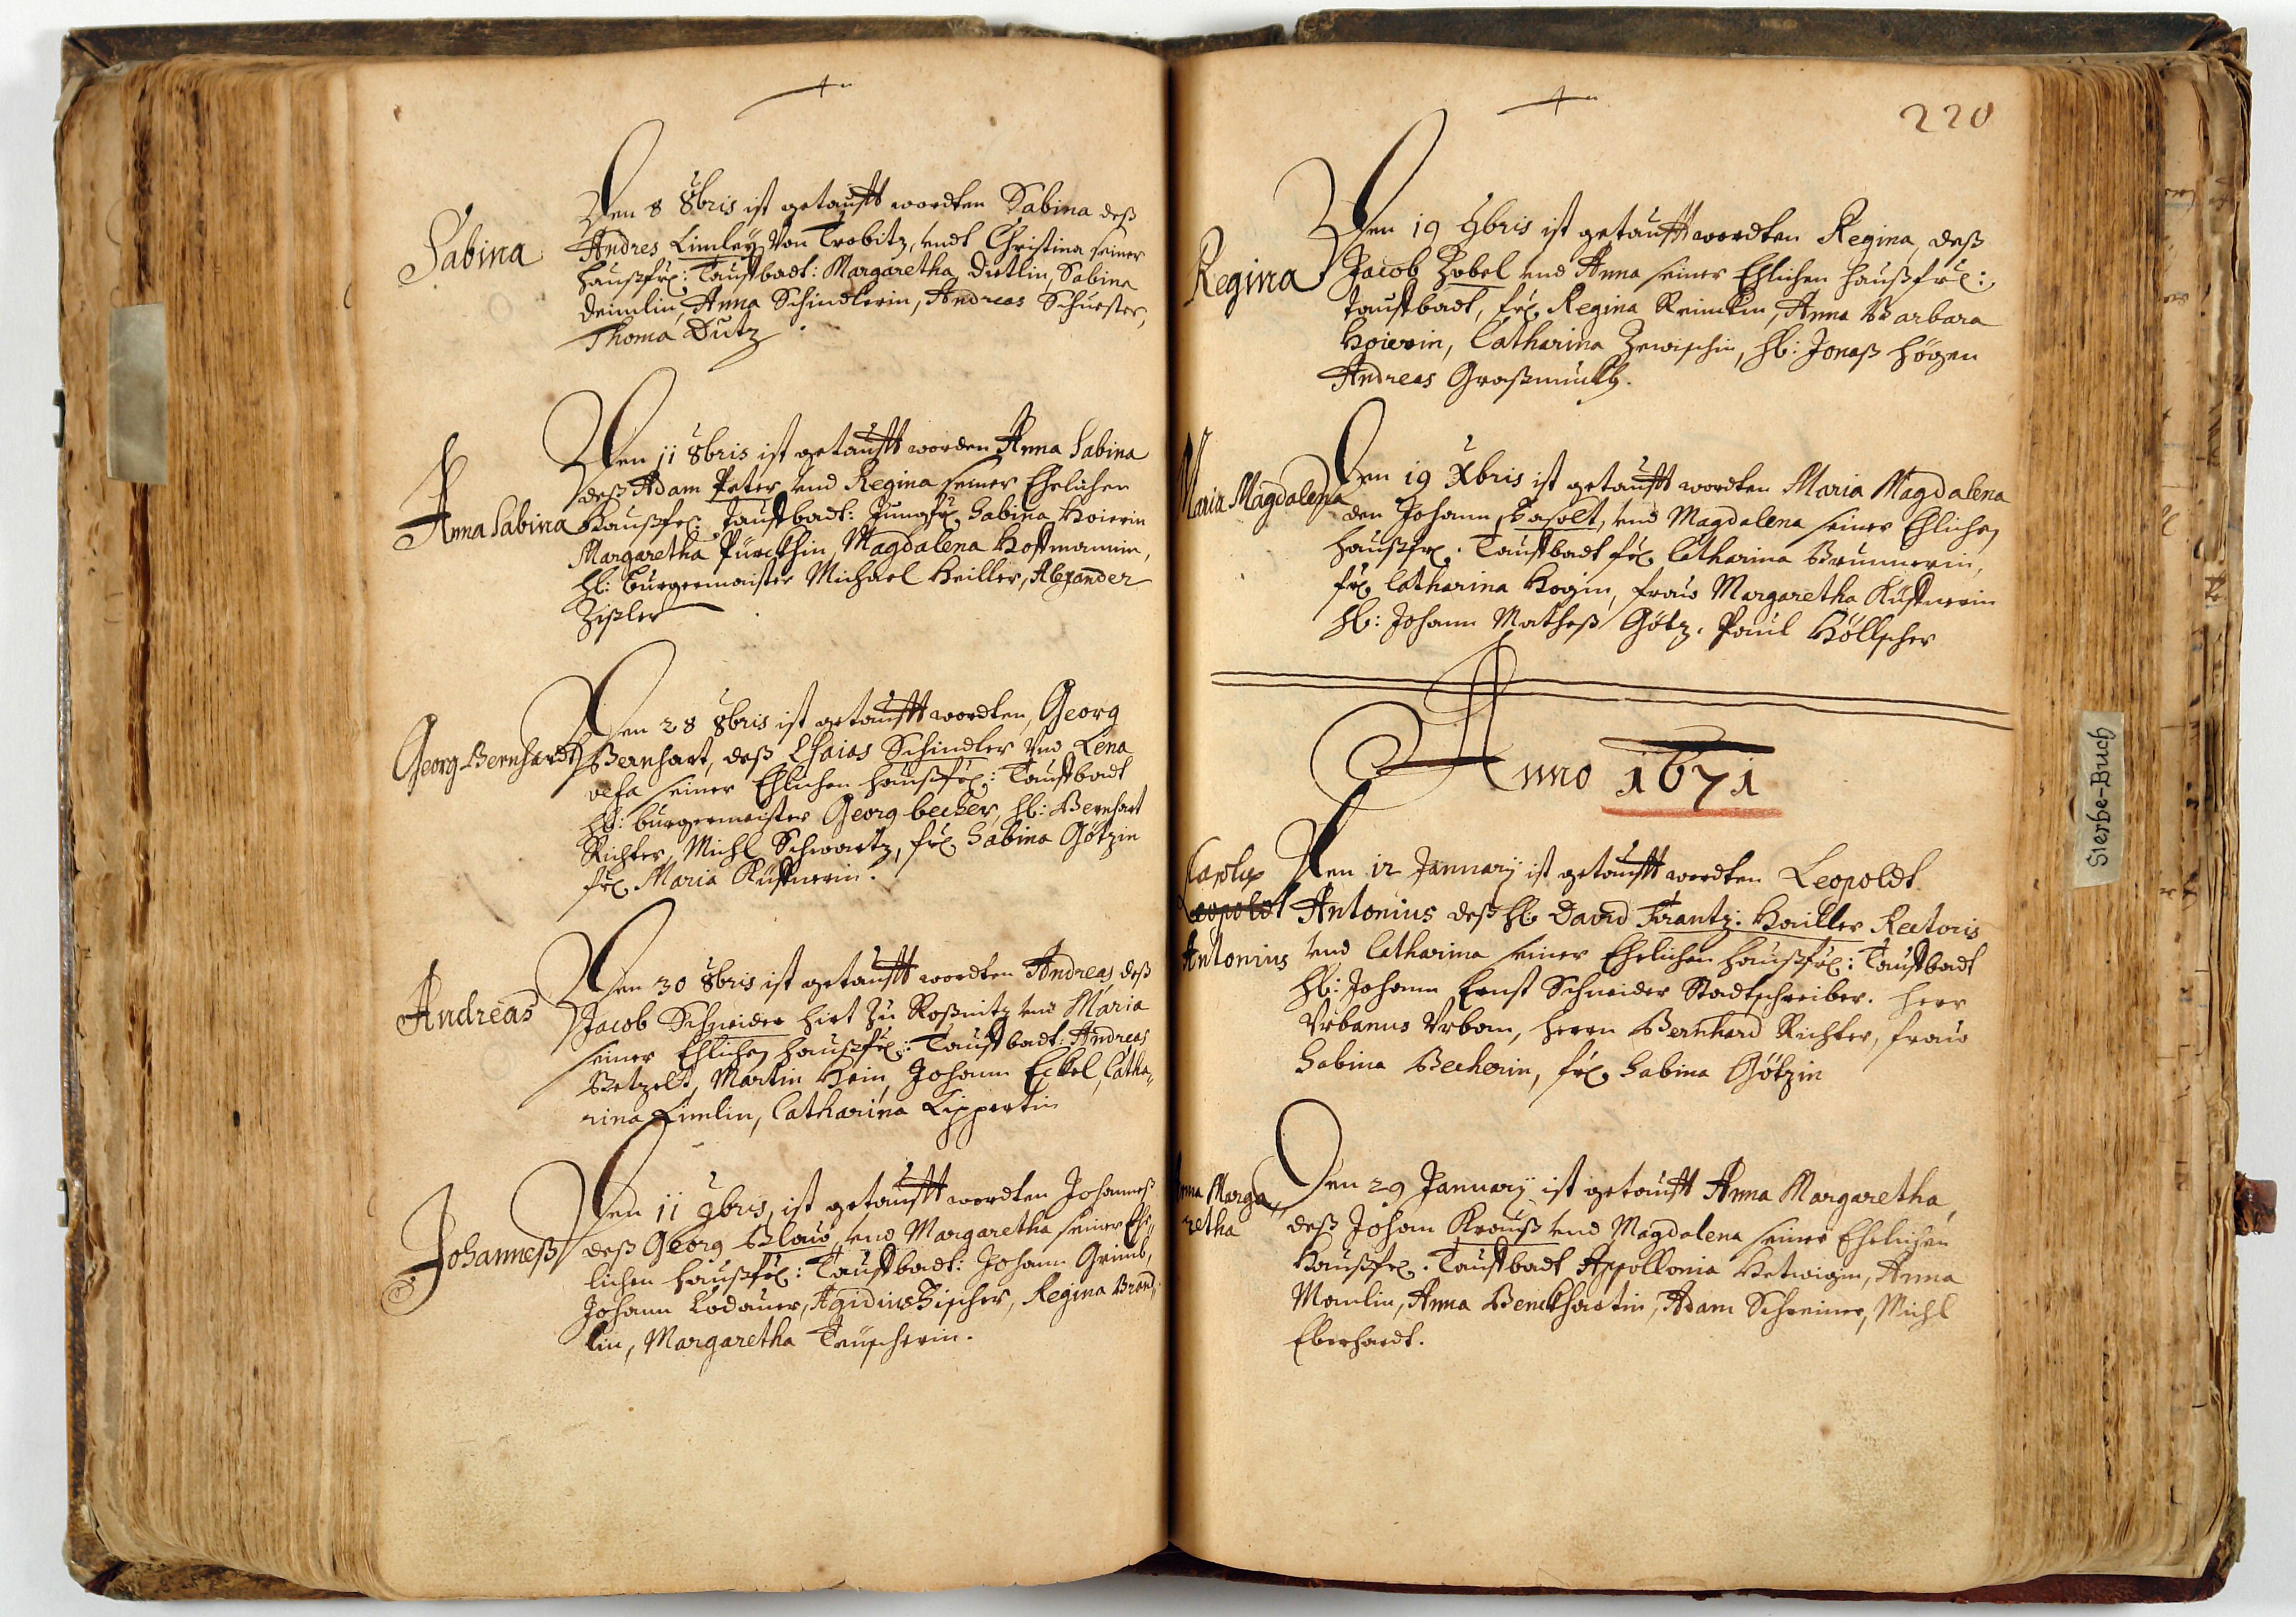 Sabina
Den 8 8bris ist getaufft wordten Sabina deß
Andres Limley Von Trebitz, vndt Christina seiner
haußfr: Tauffbadt: Margaretha Dietlin, Sabina
Deimlin, Anna Schindlerin, Andreas Schuester,
Thoma Dutz
Anna Sabina
Den 11 8bris ist getaufft worden Anna Sabina
deß Adam Peter vnd Regina seiner Ehelichen
Haußfr: Tauffbadt: Jungfr Sabina Hoierin
Margaretha Purckhin, Magdalena Hoffmannin,
H: Burgermaister Michael Heiller, Alexander
Zißler
Georg Bernhardt
Den 28 8bris ist getaufft wordten, Georg
Bernhart, deß Esaias Schindler Vnd Lena
seiner Ehlichen haußfr: Tauffbadt
H: burgermaister Georg becher, H: Bernhart
Richter, Michl Schwartz, fr Sabina Götzin
fr Maria Küffnerin.
Andreas
Den 30 8bris ist getaufft wordten Andreas, deß
Jacob Schneider hirt Zu Roßnitz vnd Maria
seiner Ehlichen haußfr: Tauffbadt: Andreas
Netzelt, Martin Hein, Johann Eckel, Catha„
rina Limlin, Catharina Lippertin
Johanneß
Den 11 9bris, ist getaufft wordten Johanneß
deß Georg Blaw, vnd Margaretha seiner Eh„
lichen haußfr: Tauffbadt: Johann Grimb,
Johann Lodauer, Agidius Fischer, Regina Brand„
lin, Margaretha Teuscherin.
220
Regina
Den 19 9bris ist getaufft wordten Regina, deß
Jacob Zobel vnd Anna seiner Ehlichen haußfr:
Tauffbadt, fr Regina Reinekin, Anna Barbara
Hoierin, Catharina Zewischin, H: Jonaß Högen
Andreas Großmuckh.
Maria Magdalena
Den 19 Xbris ist getaufft wordten Maria Magdalena
den Johann Fasolt, vnd Magdalena seiner Ehlichen
haußfr. Tauffbadt fr Catharina Brunnerin,
fr Catharina Hogin, fraw Margaretha Küffnerin
H: Johann Matheß Götz. Paul Höllscher
Anno 1671
Carolus
Leopoldt
Antonius
Den 12 January ist getaufft wordten Leopoldt
Antonius deß H: David Frantz: Hailler Rectoris
vnd Catharina seiner Ehelichen haußfr: Tauffbadt
H: Johann Ernst Schneider Stadtschreiber. herr
Vrbanus Vrban, herrn Bernhard Richter, fraw
Sabina Becherin, fr Sabina Götzin
Anna Marga„
retha
Den 29 January ist getaufft Anna Margaretha,
deß Johan Krauß vnd Magdalena seiner Ehelichen
Haußfr. Tauffbadt Appollonia Hetwigin, Anna
Manlin, Anna Benckhartin, Adam Schreiner, Michl
Eberhardt.
Sterbe-Buch